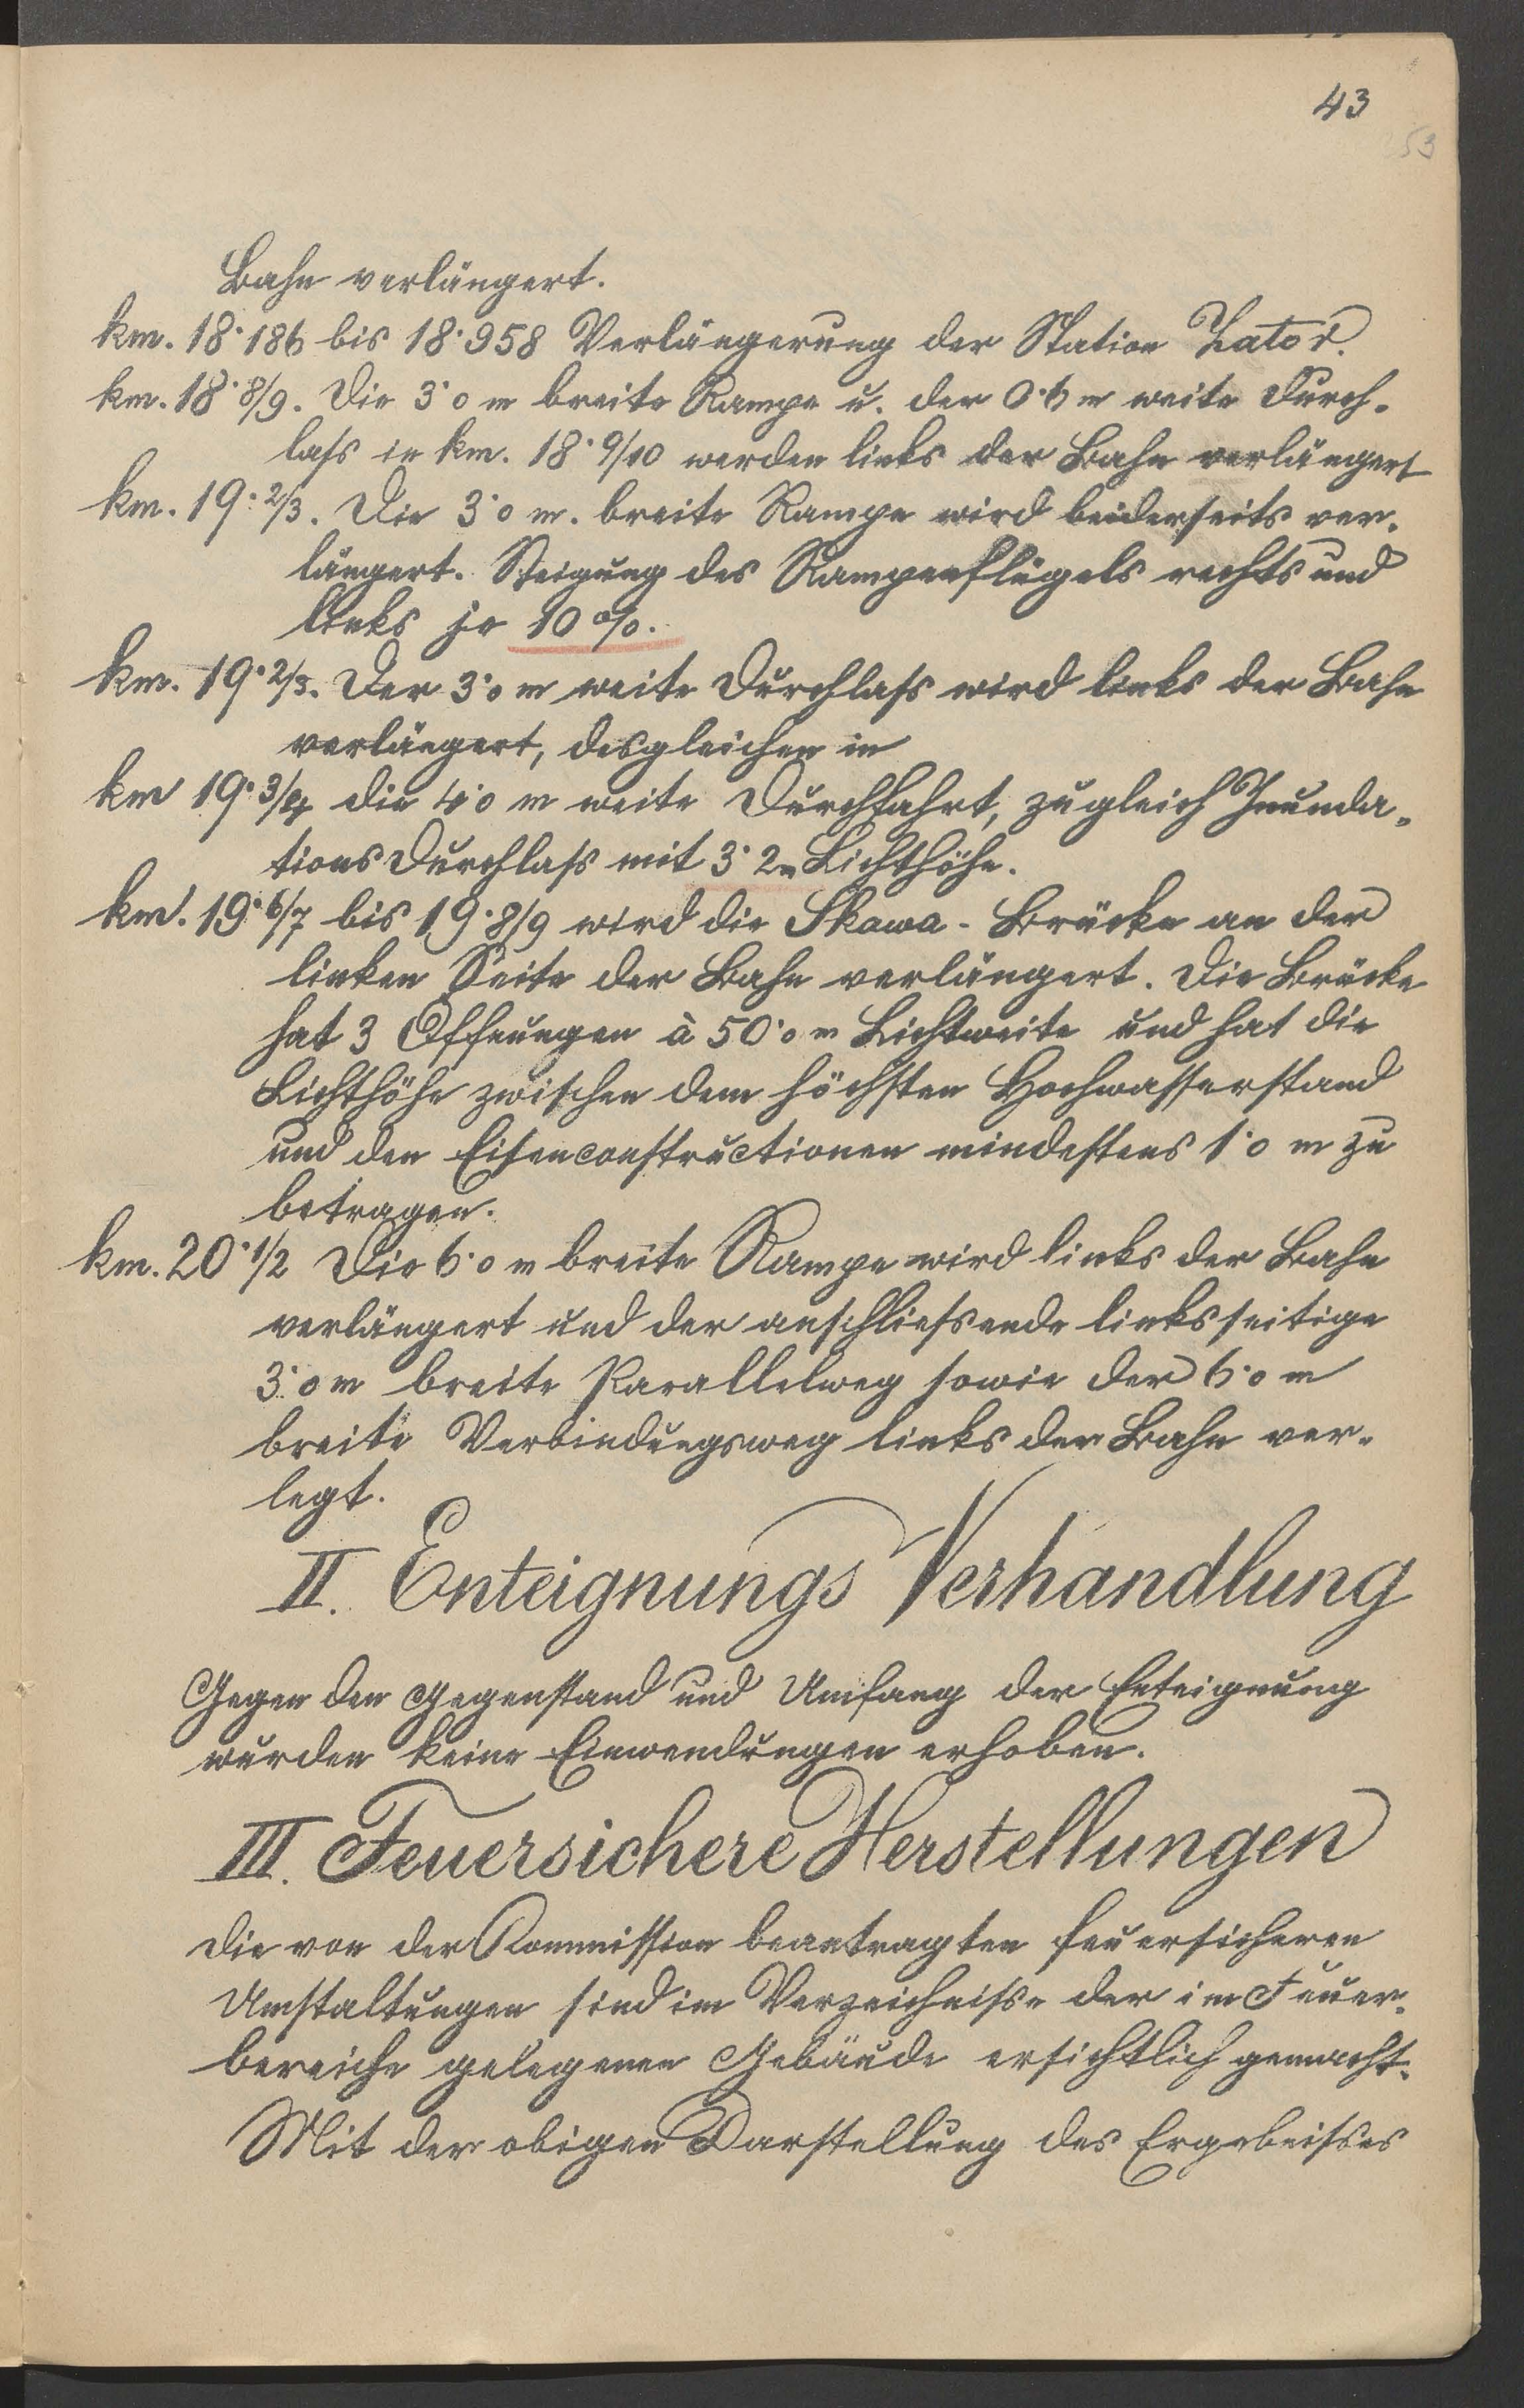 43
53
Bahn verlängert.
km. 18·186 bis 18·958 Verlängerung der Station Zator.
km. 18·8/9. Die 3·0 m breite Rampe u. der 0·6 m weite Durch-
laſs in km. 18·9/10 werden links der Bahn verlängert
km. 19·2/3. Die 3·0 m. breite Rampe wird beiderseits ver-
längert. Steigung des Rampenflügels rechts und
links je 10%.
km. 19·2/3. Der 3·0 m weite Durchlaſs wird links der Bahn
verlängert, desgleichen in
km 19·3/4 die 4·0 m weite Durchfahrt, zugleich Inunda-
tions Durchlaſs mit 3·2 m Lichthöhe.
km. 19·6/7 bis 19·8/9 wird die Skawa-Brücke an der
linken Seite der Bahn verlängert. Die Brücke
hat 3 Öffnungen à 50·0 m Lichtweite und hat die
Lichthöhe zwischen dem höchsten Hochwasserstand
und den Eisenconstructionen mindestens 1·0 m zu
betragen.
km. 20·1/2 Die 6·0 m breite Rampe wird links der Bahn
verlängert und der anschlieſsende linksseitige
3·0 m breite Parallelweg sowie der 6·0 m
breite Verbindungsweg links der Bahn ver-
legt.
II. Enteignungs Verhandlung
Gegen den Gegenstand und Umfang der Enteignung
wurden keine Einwendungen erhoben.
III. Feuersichere Herstellungen
Die von der Kommission beantragten feuersicheren
Umstaltungen sind im Verzeichniſse der im Feuer-
bereiche gelegenen Gebäude ersichtlich gemacht.
Mit der obigen Darstellung des Ergebniſses